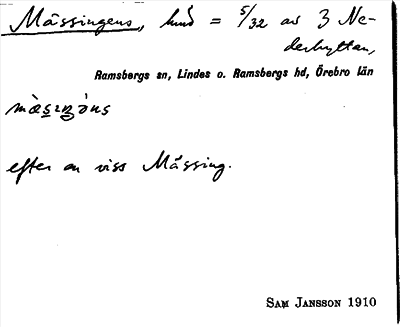 Mässingens, hind = 5/32 av 3 Ne-
derhyttan,
Ramsbergs sn, Lindes o. Ramsbergs hd, Örebro län
efter en viss Mässing.
SAM JANSSON 1910